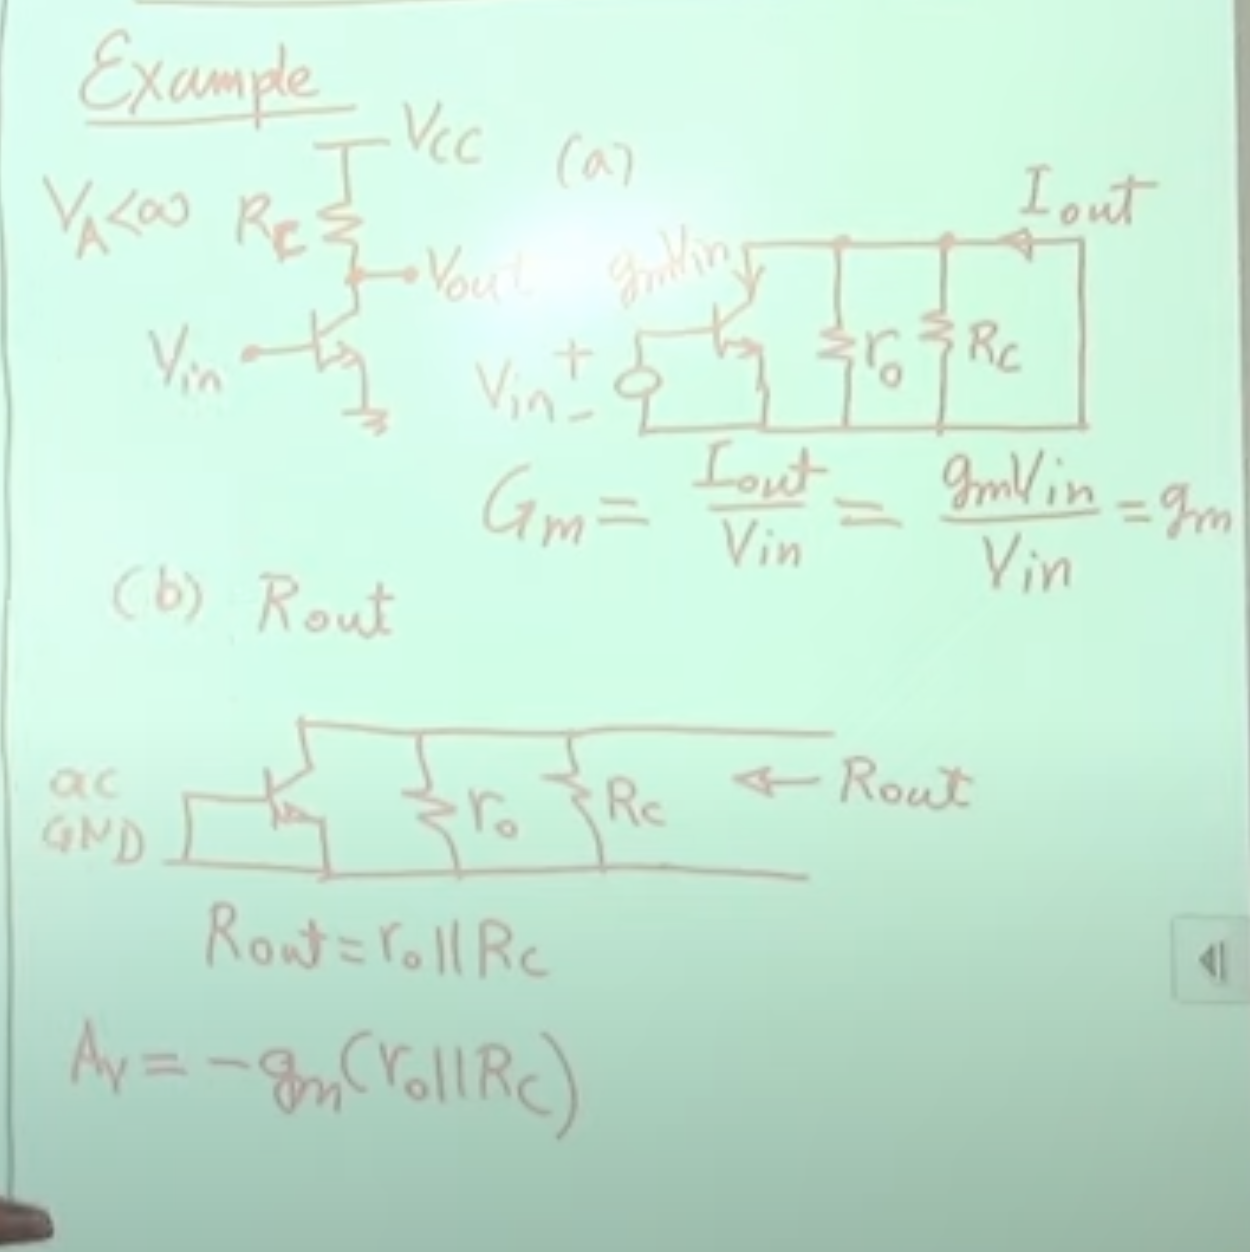 Example
VCC
VA<∞
RC
Vout
Vin
(a)
Iout
gmVin
Vin + -
ro
RC
Gm = Iout/Vin = gmVin/Vin = gm
(b) Rout
ac
GND
ro
RC
← Rout
Rout = ro || RC
Av = -gm(ro || RC)